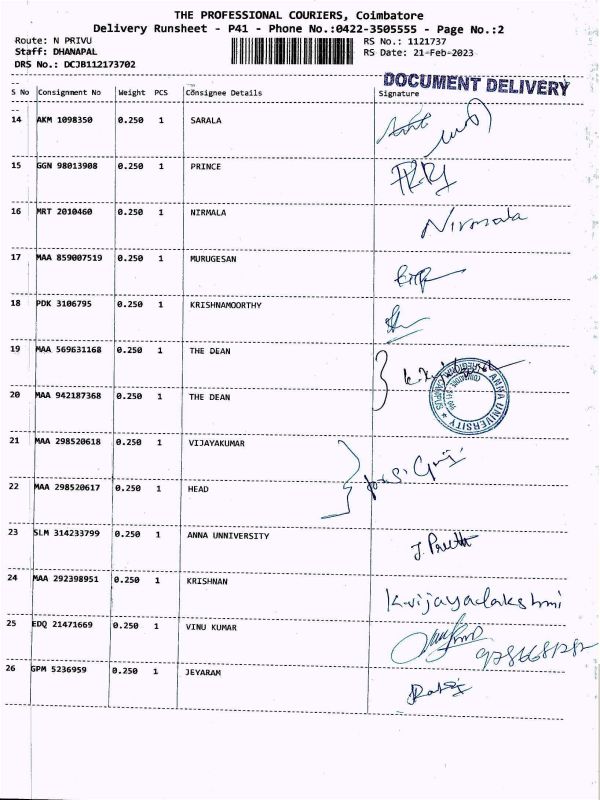 THE PROFESSIONAL COURIERS, Coimbatore
Delivery Runsheet - P41 - Phone No.:0422-3505555 - Page No.:2
Route: N PRIVU RS No.: 1121737
Staff: DHANAPAL RS Date: 21-Feb-2023
DRS No.: DCJB112173702
DOCUMENT DELIVERY
S No Consignment No Weight PCS Consignee Details Signature
14 AKM 1098350 0.250 1 SARALA
15 GGN 98013908 0.250 1 PRINCE
16 MRT 2010460 0.250 1 NIRMALA Nirmala
17 MAA 859007519 0.250 1 MURUGESAN
18 PDK 3106795 0.250 1 KRISHNAMOORTHY
19 MAA 569631168 0.250 1 THE DEAN
ANNA UNIVERSITY
20 MAA 942187368 0.250 1 THE DEAN
21 MAA 298520618 0.250 1 VIJAYAKUMAR
22 MAA 298520617 0.250 1 HEAD
23 SLM 314233799 0.250 1 ANNA UNNIVERSITY
24 MAA 292398951 0.250 1 KRISHNAN K.vijayalakshmi
25 EDQ 21471669 0.250 1 VINU KUMAR
26 GPM 5236959 0.250 1 JEYARAM